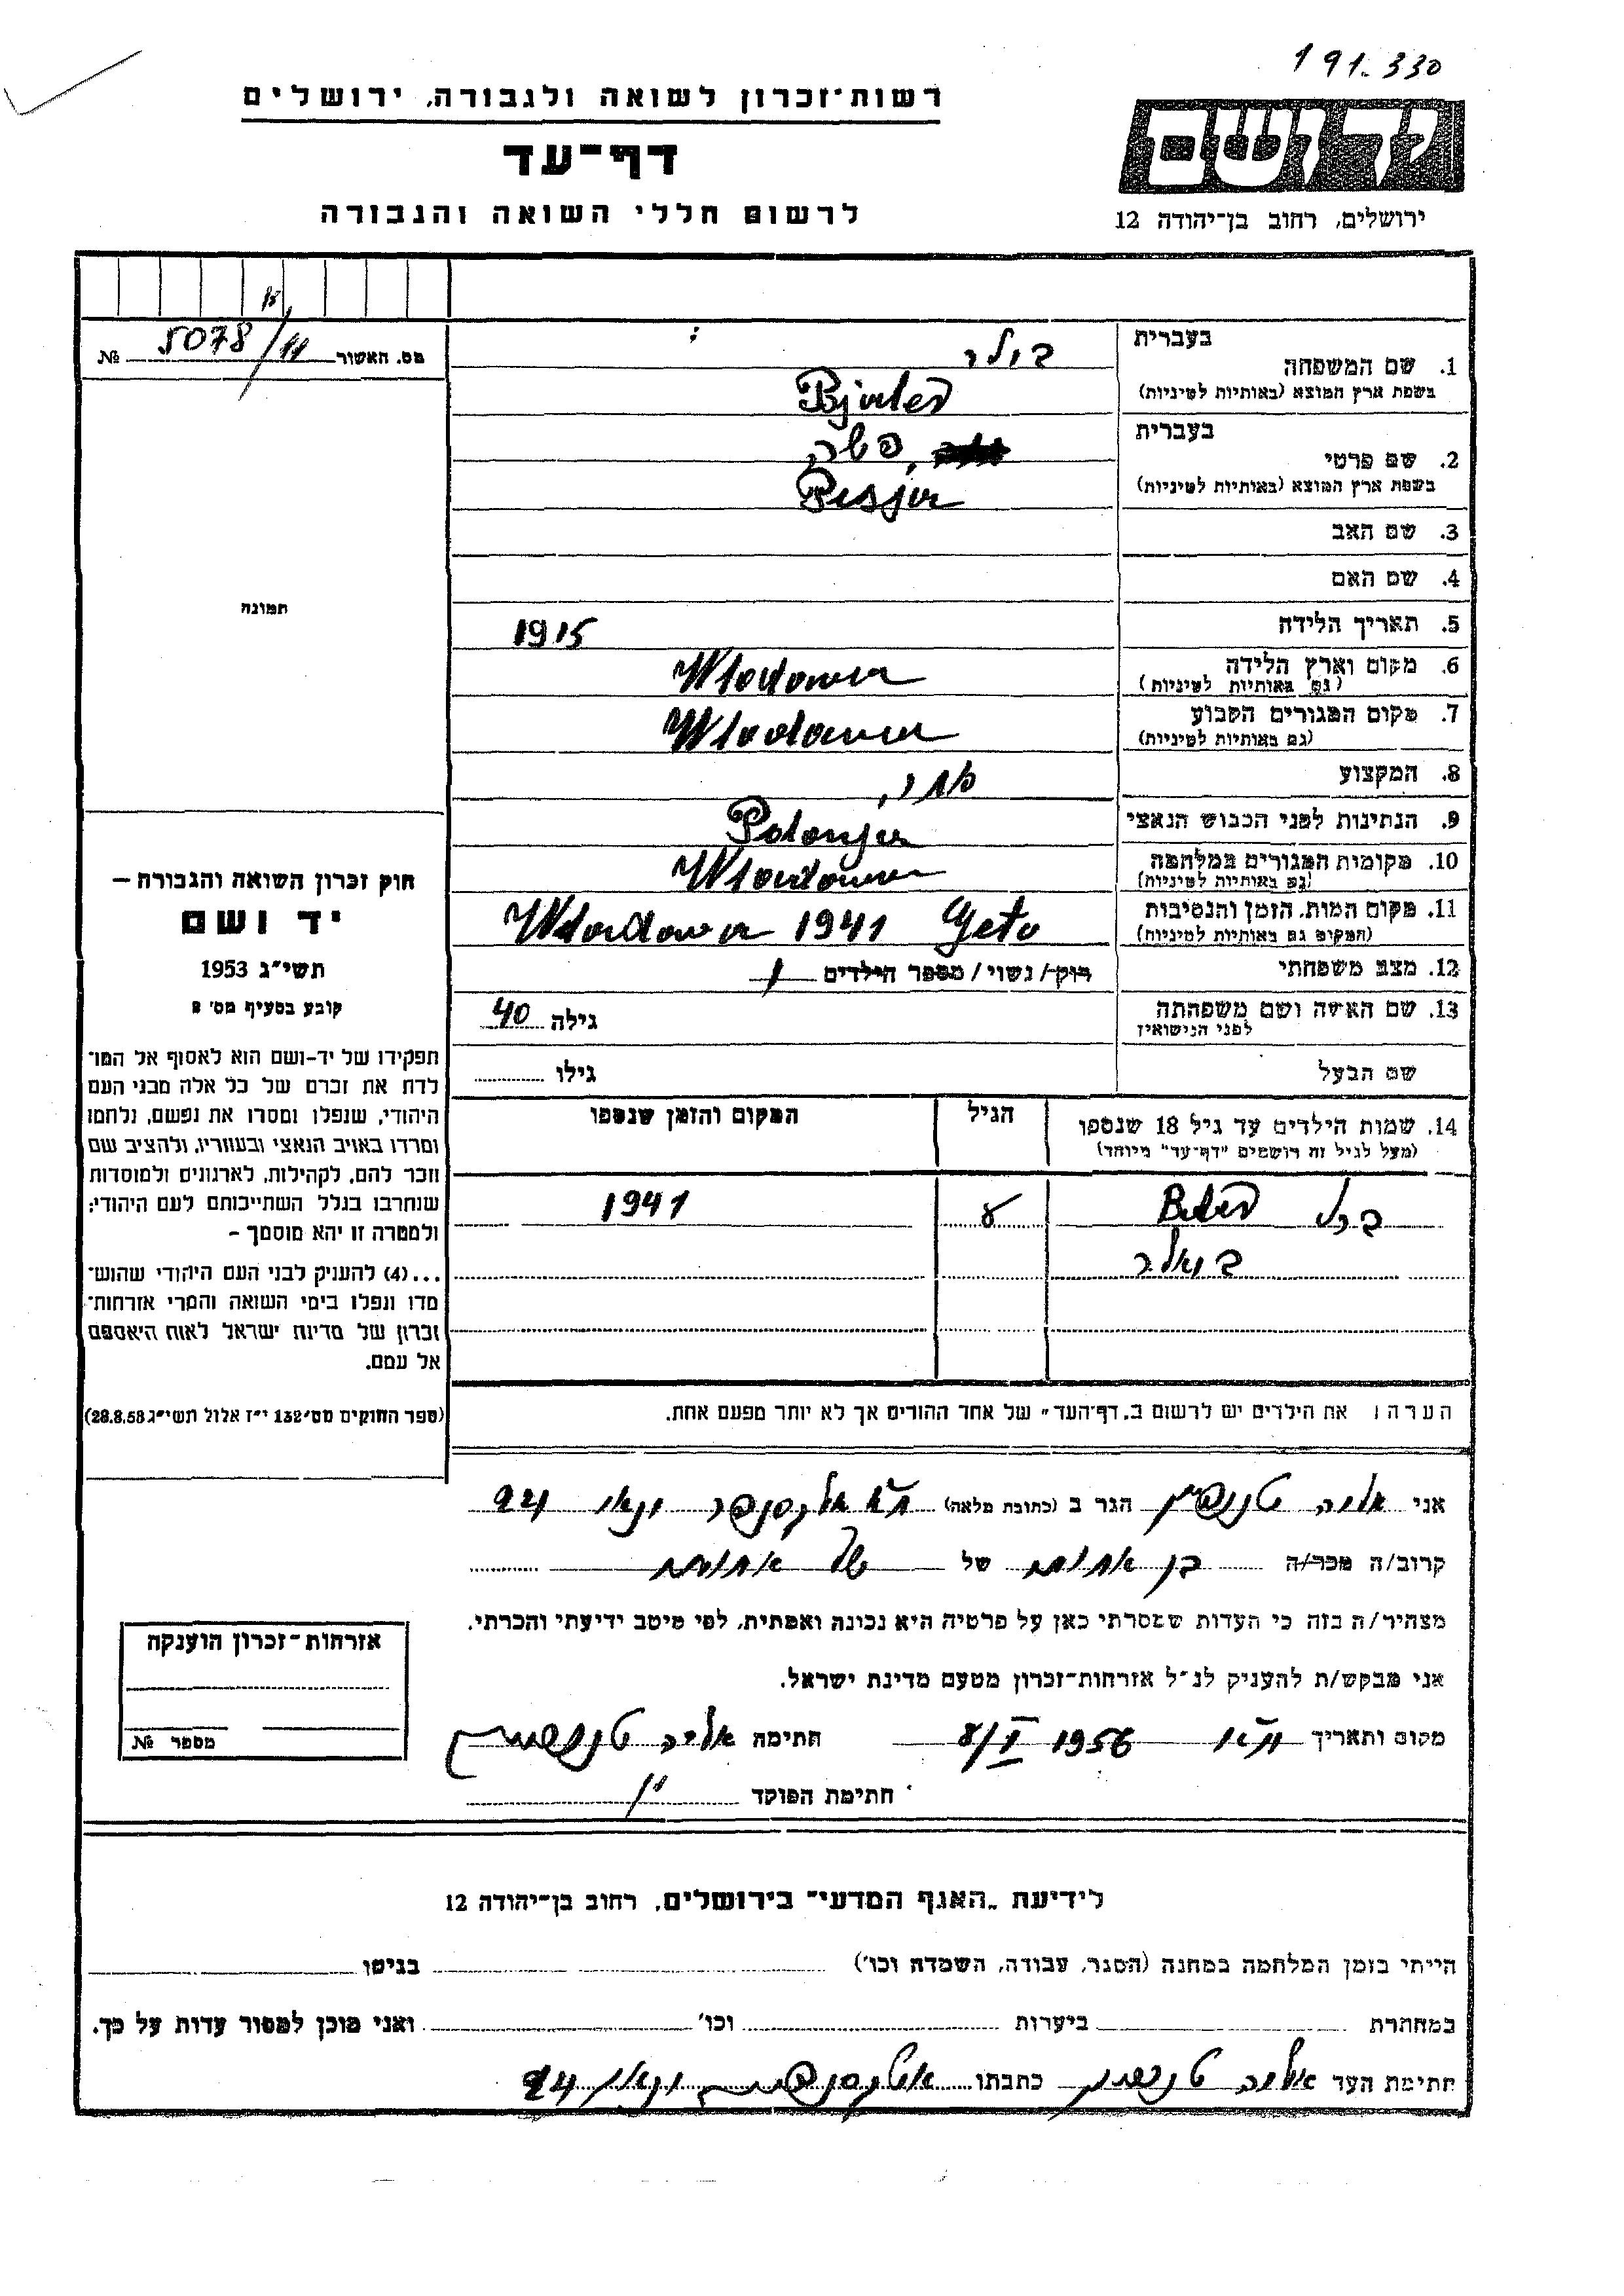 191.330
רשות־זכרון לשואה ולגבורה, ירושלים
דף־עד
לרשום חללי השואה והגבורה
יד ושם
ירושלים, רחוב בן־יהודה 12
מס. האשור 5078/11 №
תמונה
חוק זכרון השואה והגבורה —
יד ושם
תשי״ג 1953
קובע בסעיף מס׳ 2
תפקידו של יד-ושם הוא לאסוף אל המו־
לדת את זכרם של כל אלה מבני העם
היהודי, שנפלו ומסרו את נפשם, נלחמו
ומרדו באויב הנאצי ובעוזריו, ולהציב שם
וזכר להם, לקהילות, לארגונים ולמוסדות
שנחרבו בגלל השתייכותם לעם היהודי;
ולמטרה זו יהא מוסמך –
...(4) להעניק לבני העם היהודי שהוש־
מדו ונפלו בימי השואה והמרי אזרחות־
זכרון של מדינת ישראל לאות היאספם
אל עמם.
(ספר החוקים מס׳ 132 י״ז אלול תשי״ג 28.8.53)
בעברית
1. שם המשפחה בולר
בשפת ארץ המוצא (באותיות לטיניות) Bjuler
בעברית
2. שם פרטי פשה
בשפת ארץ המוצא (באותיות לטיניות) Pesja
3. שם האב
4. שם האם
5. תאריך הלידה 1915
6. מקום וארץ הלידה Wlodowa
(גם באותיות לטיניות)
7. מקום המגורים הקבוע Wlodawa
(גם באותיות לטיניות)
8. המקצוע
9. הנתינות לפני הכבוש הנאצי Polonja
10. מקומות המגורים במלחמה Wlodowa
(גם באותיות לטיניות)
11. מקום המות, הזמן והנסיבות Wlodowa 1941 Geto
(המקום גם באותיות לטיניות)
12. מצב משפחתי רוק/נשוי/מספר הילדים 1
13. שם האשה ושם משפחתה גילה 40
לפני הנישואין
שם הבעל גילו
14. שמות הילדים עד גיל 18 שנספו הגיל המקום והזמן שנספו
(מעל לגיל זה רושמים "דף־עד" מיוחד)
ברל 8 1941
בואלר
הערה: את הילדים יש לרשום ב„דף־העד״ של אחד ההורים אך לא יותר מפעם אחת.
אני אליה הגר ב (כתובת מלאה) ת״א 94
קרוב/ה מכר/ה בן אחות של של אחותי
מצהיר/ה בזה כי העדות שמסרתי כאן על פרטיה היא נכונה ואמתית, לפי מיטב ידיעתי והכרתי.
אני מבקש/ת להעניק לנ״ל אזרחות־זכרון מטעם מדינת ישראל.
מקום ותאריך ת״א 1956 חתימה אליה
חתימת הפוקד
אזרחות־זכרון הוענקה
מספר №
לידיעת „האגף המדעי״ בירושלים, רחוב בן־יהודה 12
הייתי בזמן המלחמה במחנה (הסגר, עבודה, השמדה וכו׳) בגיטו
במחתרת ביערות וכו׳ ואני מוכן למסור עדות על כך.
חתימת העד אליה כתבתו 94